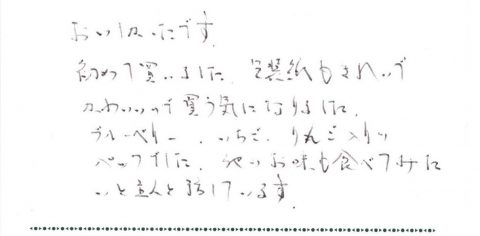 おいしかったです。
初めて買いました。包装紙もきれいで
かわいいので買う気になりました。
ブルーベリー、いちご、りんご入り
ました。他のお味も食べてみた
いと主人と話しています。